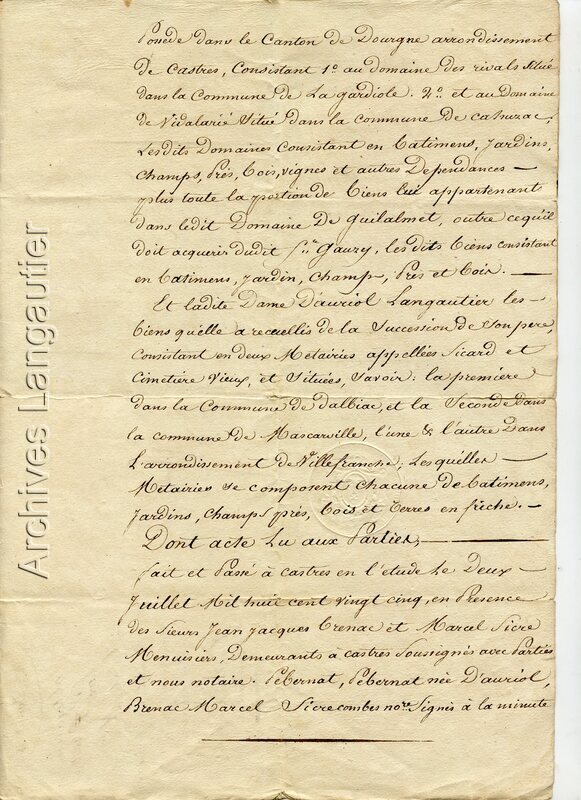 Possede dans le Canton de Dourgne arrondissement
de Castres, Consistant 1.º au domaine des rivals Situé
dans la Commune de La gardiole. 2.º et au Domaine
de Vidalarié Situé dans la commune de cahuzac,
Lesdits Domaines Consistant en batimens, Jardins,
Champs, Prés, bois, vignes et autres Dependances —
plus toute la portion de biens lui appartenant
dans ledit Domaine de Guilalmet, outre cequil
doit acquerir dudit S.r Gaury, lesdits biens consistant
en batimens, Jardin, Champ, Prés et bois. —
Et ladite Dame Dauriol Langautier les —
biens qu'elle a recuellis de la Succession de son pere,
Consistant en deux Metairies appellées Sicard et
Cimetiere Vieux, et Situées, Savoir: la premiere
dans la Commune de Dalbiac, et la Seconde Dans
la commune de Mascarville, l'une & l'autre Dans
L'arrondissement de Villefranche; Lesquelles —
Metairies se composent chacune de batimens,
Jardins, champs, prés, bois et terres en friche. —
Dont acte Lu aux Parties, —
fait et Passé à Castres en l'étude Le Deux —
Juillet Mil huit cent vingt cinq, en Presence
des Sieurs Jean Jacques Brenac et Marcel Sicre
Menuisiers, Demeurants à castres Soussignés avec Parties
et nous notaire. Pébernat, Pébernat née D'auriol,
Brenac Marcel Sicre combes n.re Signés à la minute
Archives Langautier